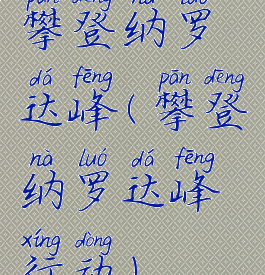 pān dēng nà luó
攀登纳罗
dá fēng pān dēng
达峰(攀登
nà luó dá fēng
纳罗达峰
xíng dòng
行动)